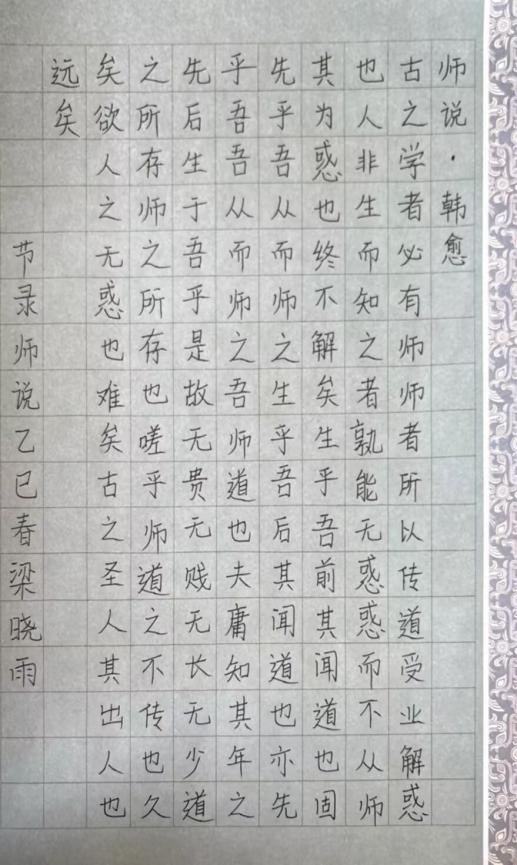 师说·韩愈
古之学者必有师师者所以传道受业解惑
也人非生而知之者孰能无惑惑而不从师
其为惑也终不解矣生乎吾前其闻道也固
先乎吾吾从而师之生乎吾后其闻道也亦先
乎吾吾从而师之吾师道也夫庸知其年之
先后生于吾乎是故无贵无贱无长无少道
之所存师之所存也嗟乎师道之不传也久
矣欲人之无惑也难矣古之圣人其出人也
远矣
节录师说乙巳春梁晓雨